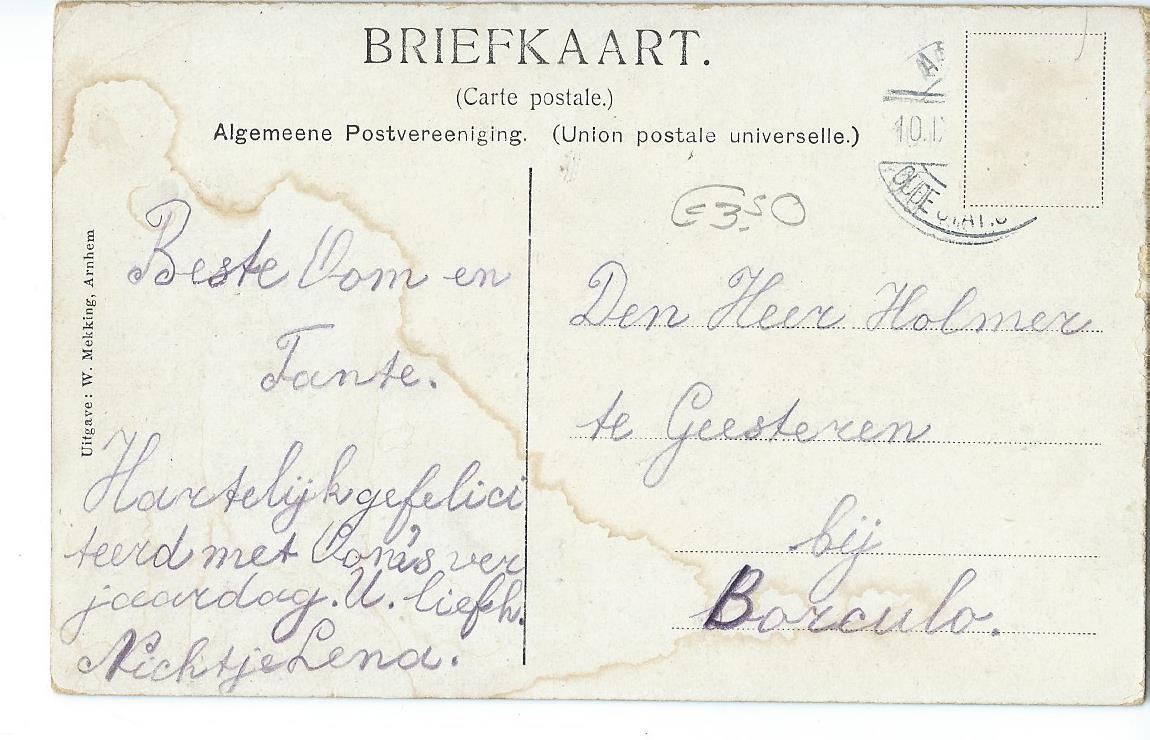 BRIEFKAART.
(Carte postale.)
Algemeene Postvereeniging. (Union postale universelle.)
10.
OUDE
€ 3.50
Uitgave: W. Mekking, Arnhem
Beste Oom en
Tante.
Hartelijk gefelici
teerd met Oom's ver
jaardag. U. liefh.
Nichtje Lena.
Den Heer Holmer
te Geesteren
bij
Borculo.